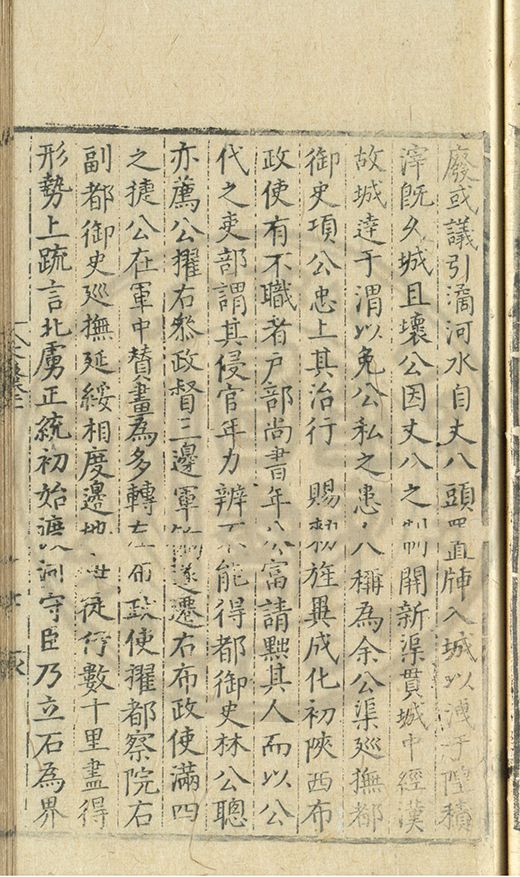 廢或議引潏河水自丈八頭 置牐入城以洩于隍積
滓既久城且壞公因丈八之制開新渠貫城中經漢
故城達于渭以免公私之患人稱為余公渠巡撫都
御史項公忠上其治行 賜勑旌異成化初陝西布
政使有不職者戶部尚書年公富請黜其人而以公
代之吏部謂其侵官年力辨不能得都御史林公聰
亦薦公擢右叅政督三邊軍 遷右布政使滿四
之捷公在軍中賛畫為多轉左布政使擢都察院右
副都御史廵撫延綏相度邊地 徒行數十里盡得
形勢上疏言北虜正統初始渡河守臣乃立石為界